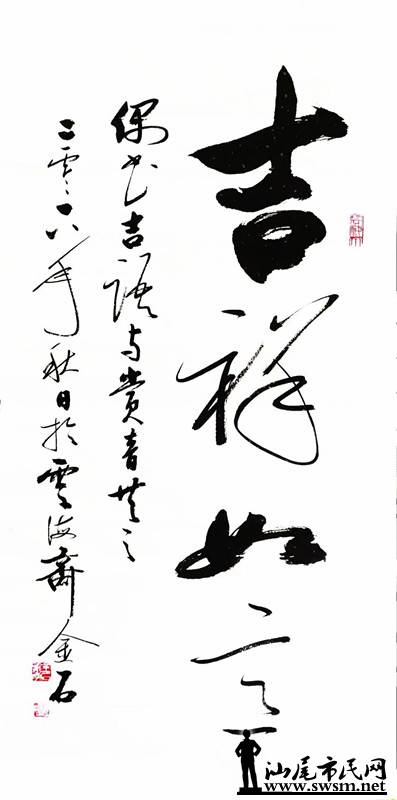 吉祥如意
偶书吉語与赏音共之
二零一八年秋日於雲海齋金石
汕尾市民网
www.swsm.net